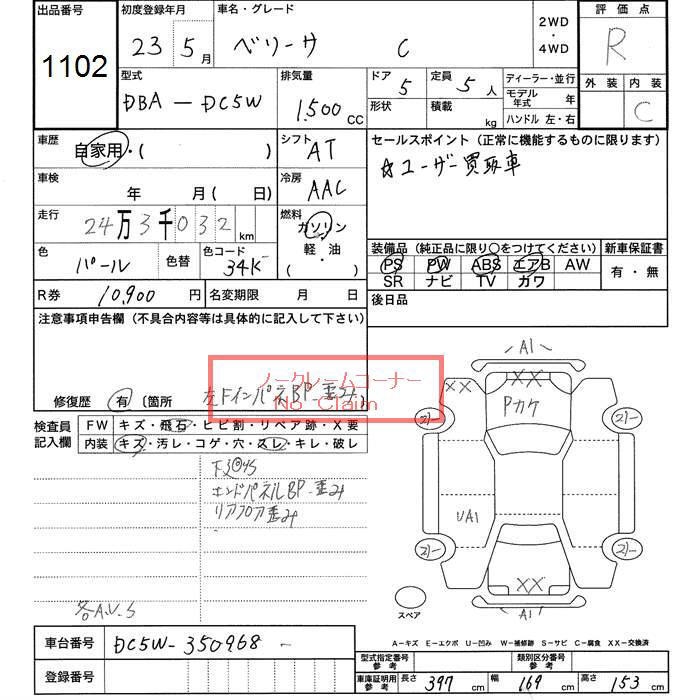 出品番号 初度登録年月 車名・グレード 2WD・4WD 評価点
1102 23 5月 ベリーサ C R
型式 排気量 ドア 5 定員 5人 ディーラー・並行 外装 内装
DBA-DC5W 1,500 CC 形状 積載 kg モデル年式 年 C
ハンドル 左・右
車歴 自家用・( ) シフト AT セールスポイント (正常に機能するものに限ります)
☆ユーザー買取車
車検 年 月(日) 冷房 AAC
走行 24万3千032km 燃料 ガソリン・軽・油( )
色 パール 色替 色コード 34K 装備品(純正品に限り○をつけてください) 新車保証書
PS PW ABS エアB AW 有・無
SR ナビ TV カワ
R券 10,900円 名変期限 月 日 後日品
注意事項申告欄(不具合内容等は具体的に記入して下さい)
ノークレームコーナー
No Claim
修復歴 有 〔箇所 左FインパネBP-歪み
検査員記入欄 FW キズ・飛石・ヒビ割・リペア跡・X要
内装 キズ・汚レ・コゲ・穴・スレ・キレ・破レ
エンドパネルBP-歪み
リアフロア歪み
各A.U.S
A1
XX XX
Pカケ
2)- 2)-
UA1
2)- 2)-
XX
A1
スペア
A-キズ E-エクボ U-凹み W-補修跡 S-サビ C-腐食 XX-交換済
車台番号 DC5W-350968-
登録番号
型式指定番号参考 類別区分番号参考
車庫証明用参考 長さ 397 cm 幅 169 cm 高さ 153 cm